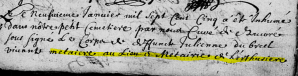 Le neufviesme Janvier mil sept cent cinq a été Inhumé
dans notre petit Cimetiere par nous Curé de
sous signé Le Corps de deffuncte Julienne du Breil
vivante metaiere au lieu et Metairie de